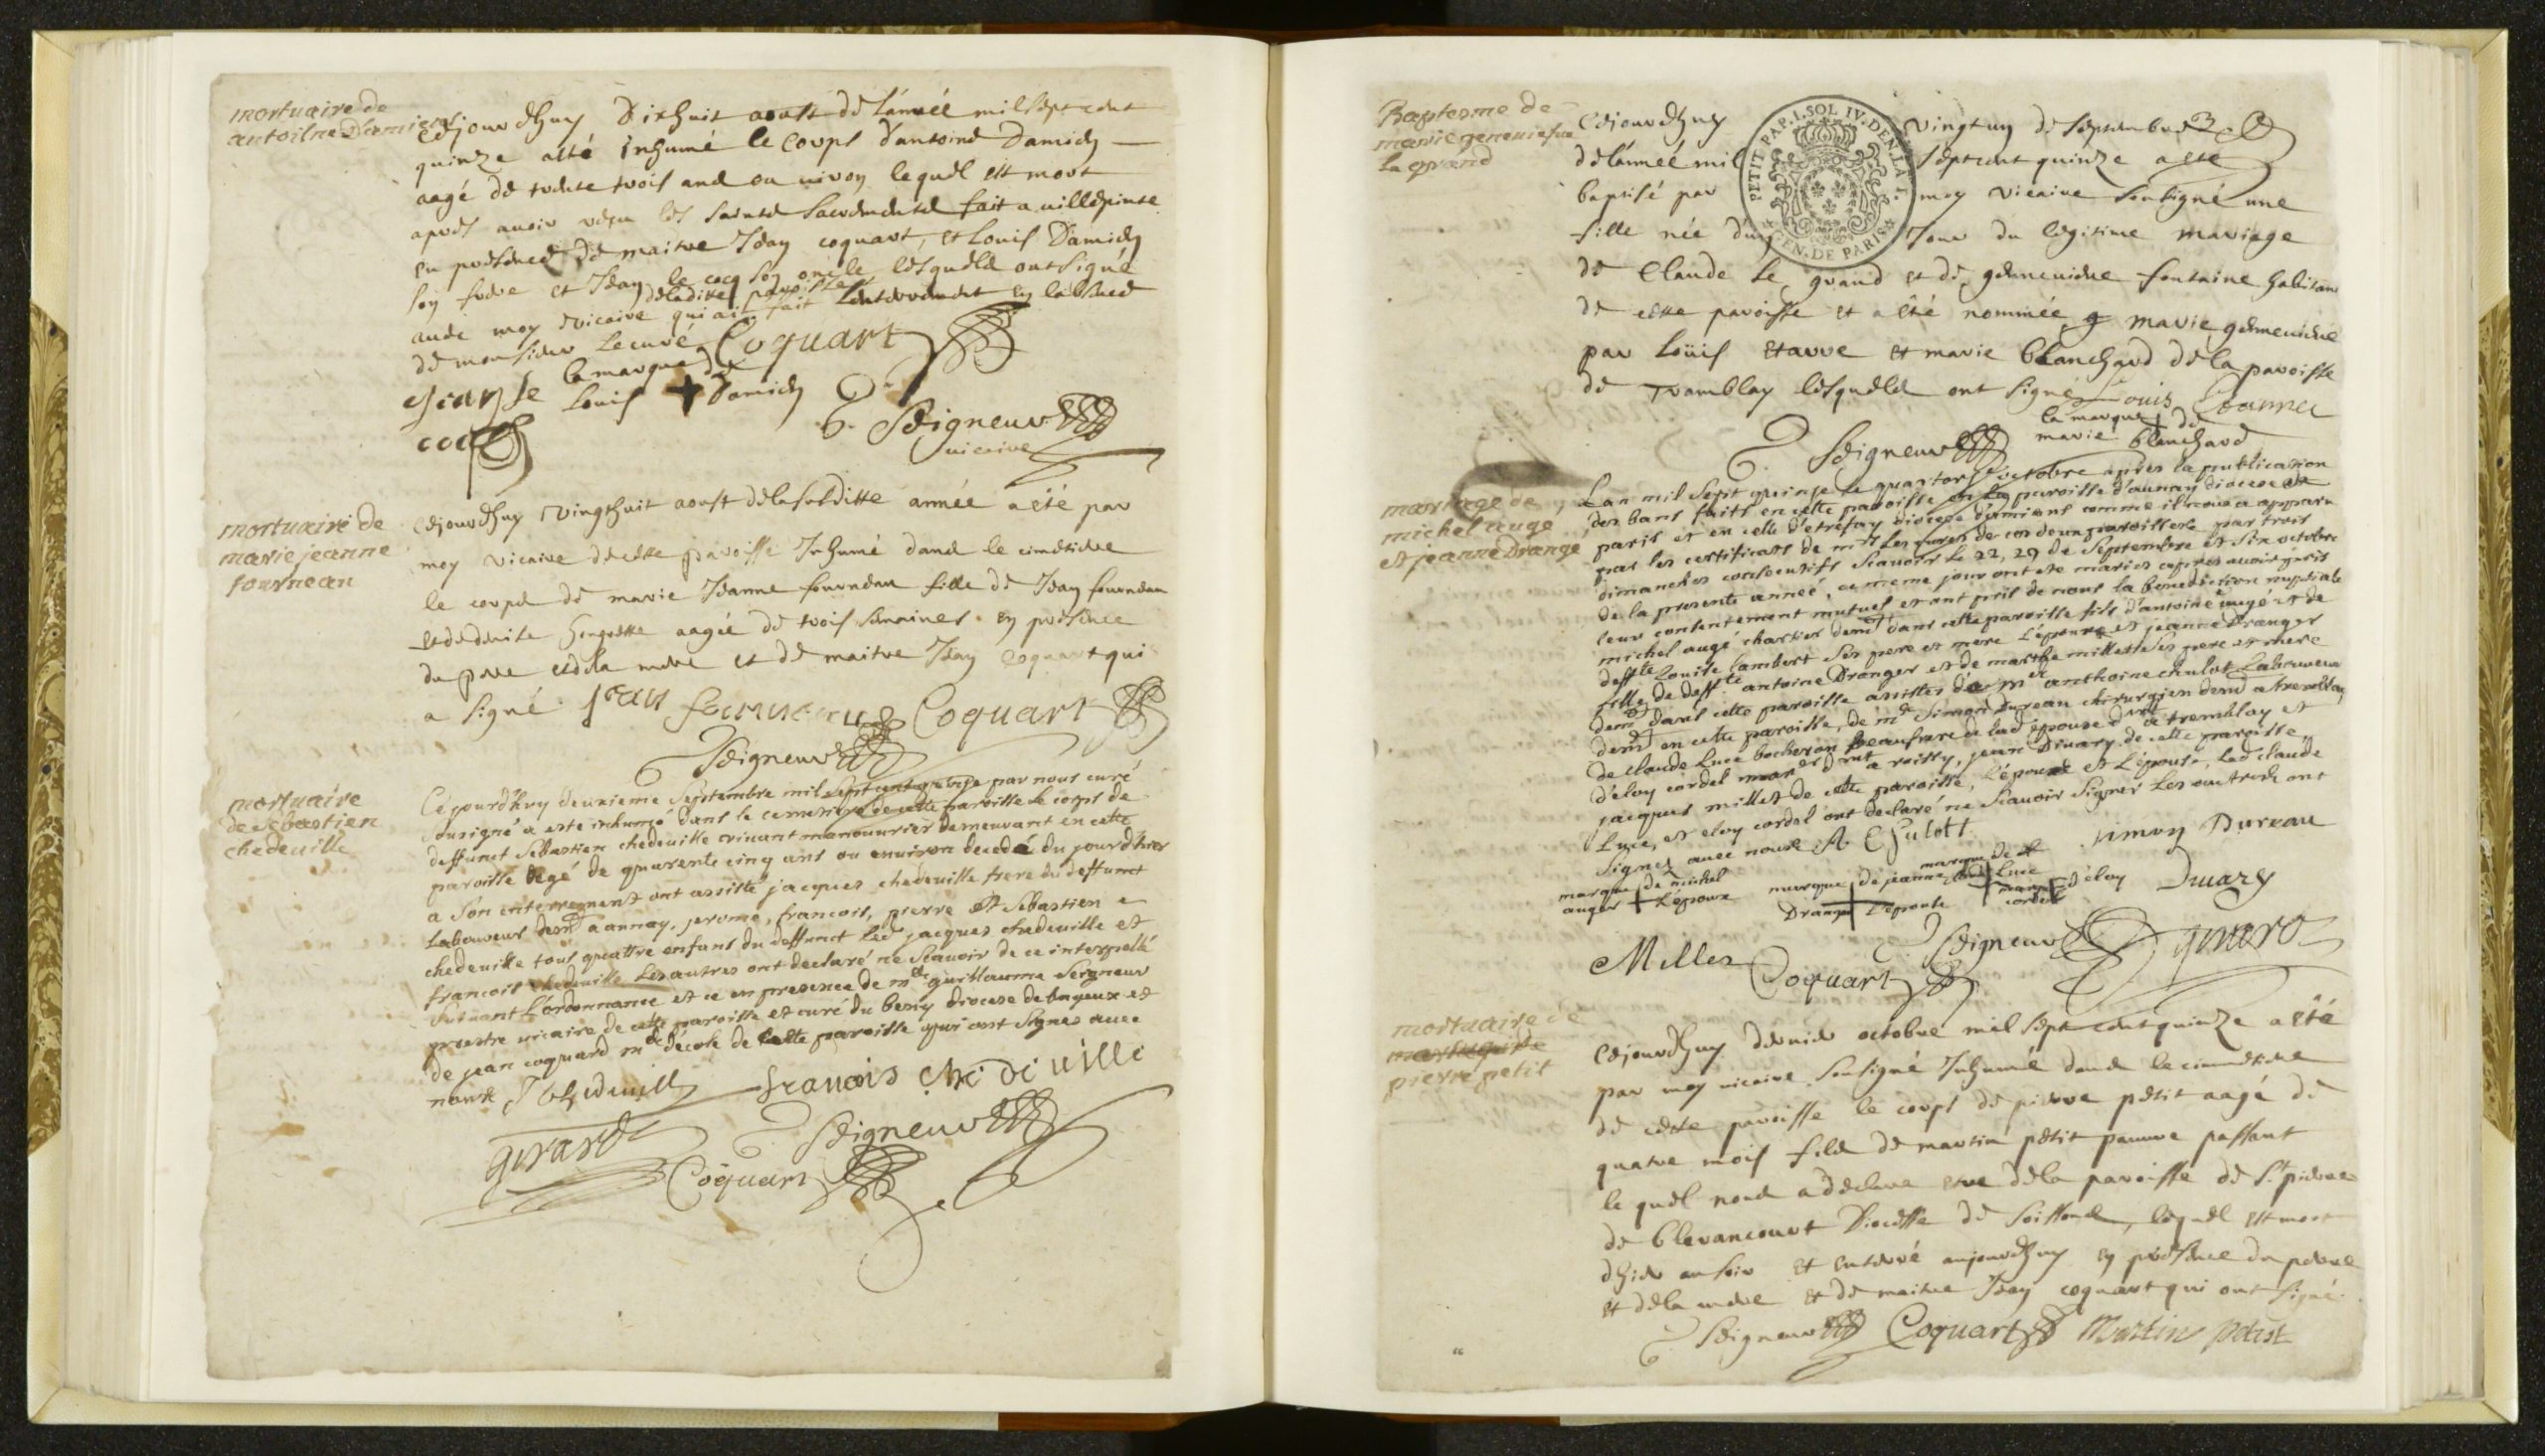 mortuaire de
antoilne Damiens
Cejourdhuy dixhuit aoust de l'année mil sept cent
quinze a esté inhumé le corps d'antoine Damien
aagé de trente trois ans ou viron lequel est mort
apres avoir reçu les saints sacrements fait a villepinte
en presence de maitre Jean coquart, et Louis Damien
son frere et Jean le cocq son oncle lesquels ont signé
de ladite paroisse
avec moy vicaire qui ait fait l'enterrement en l'absence
de monsieur le curé Coquart
Jean le
cocq
la marque de
Louis + Damien
G. Seigneur
vicaire
mortuaire de
marie jeanne
fourneau
Cejourdhuy vingthuit aoust de la susditte année a été par
moy vicaire de cette paroisse Inhumé dans le cimetiere
le corps de marie Jeanne fourneau fille de Jean fourneau
et de denise aagée de trois semaines en presence
du pere et de la mere et de maitre Jean coquart qui
a signé Jean fourneau Coquart
G Seigneur
mortuaire
de sebastien
chedeuille
Cejourd'huy deuxieme Septembre mil sept cent quinze par nous curé
sousigné a esté inhumé dans le cimetiere de cette paroisse le corps de
deffunct Sebastien chedeuille vivant manouurier demeurant en cette
paroisse aegé de quarente cinq ans ou environ decedé du jourd'hier
a son enterrement ont assisté jacques chedeuille frere du deffunct
laboureur demt a aunay, jerome, francois, pierre et Sebastien
chedeuille tous quattre enfans du deffunct led jacques chedeuille et
francois chedeuille les autres ont declaré ne scauoir de ce interpellé
suivant l'ordonnance et ce en presence de me guillaume Seigneur
prestre vicaire de cette paroisse et curé du beny diocese de bayeux et
de jean coquard me d'ecole de cette paroisse qui ont signés auec
nous J chedeuille francois che de uille
girard
G Seigneur
Coquart
Baptesme de
marie geneuiefue
la grand
PETIT PAP. 1. SOL IV. DEN. LA F.
GEN. DE PARIS
Cejourdhuy vingtun de septembre
de l'année mil sept cent quinze a esté
baptisé par moy vicaire soussigné une
fille née d'un jour du legitime mariage
de Claude le grand et de geneuieve fontaine habitans
de cette paroisse et a été nommée g marie geneuieve
par Loüis etarre et marie blanchard de la paroisse
de Tramblay lesquels ont signé Louis
la marque + de
marie blanchard
G Seigneur
mariage de
michel augé
et jeanne Drangé
Lan mil sept quinze le quatorse octobre apres la publication
des bans faits en cette paroisse en la paroisse d'aunay diocese de
paris et en celle d'etrefay diocese d'amiens comme il nous a apparu
par les certificats de mrs les curés de ces deux paroisses par trois
dimanches consecutifs scauoir le 22, 29 de Septembre et six octobre
de la presente année, ce meme jour ont esté mariés apres auoir pris
leur consentement mutuel et ont pris de nous la benediction nuptiale
michel augé chartier demt dans cette paroisse fils d'antoine augé et de
deffte Louise lambert ses pere et mere l'epoux et jeanne Dranger
fille de defft antoine Dranger et de marthe millet ses pere et mere
demt dans cette paroisse assistés de me anthoine chulot Laboureur
demt en cette paroisse, de me Simon Dureau chirurgien demt a tremblay
de claude Luce bocheron beaufrere de lad epouse demt a tremblay et
d'eloy cordel demt a roissy, jean Diuary de cette paroisse,
jacques millet de cette paroisse, l'epoux et l'epouse, led claude
Luce, et eloy cordel ont declaré ne scauoir signer les autres ont
signez auec nous A. Chulott Simon Dureau
marque de michel
auger + l'epoux
marque de jeanne
Dranger + l'epouse
marque de
+ Luce
marque d'eloy
cordel
Duary
Millet
Coquart
G Seigneur
girard
mortuaire de
pierre petit
Cejourdhuy dernier octobre mil sept cent quinze a été
par moy vicaire soussigné Inhumé dans le cimetiere
de cette paroisse le corps de pierre petit aagé de
quatre mois fils de martin petit pauure passant
le quel nous a declaré etre de la paroisse de St pierre
de blerancourt Diocesse de soissons, lequel est mort
dhier au soir et enterré aujourdhuy en presence du pere
et de la mere et de maitre Jean coquart qui ont signé
G Seigneur Coquart Martin petit